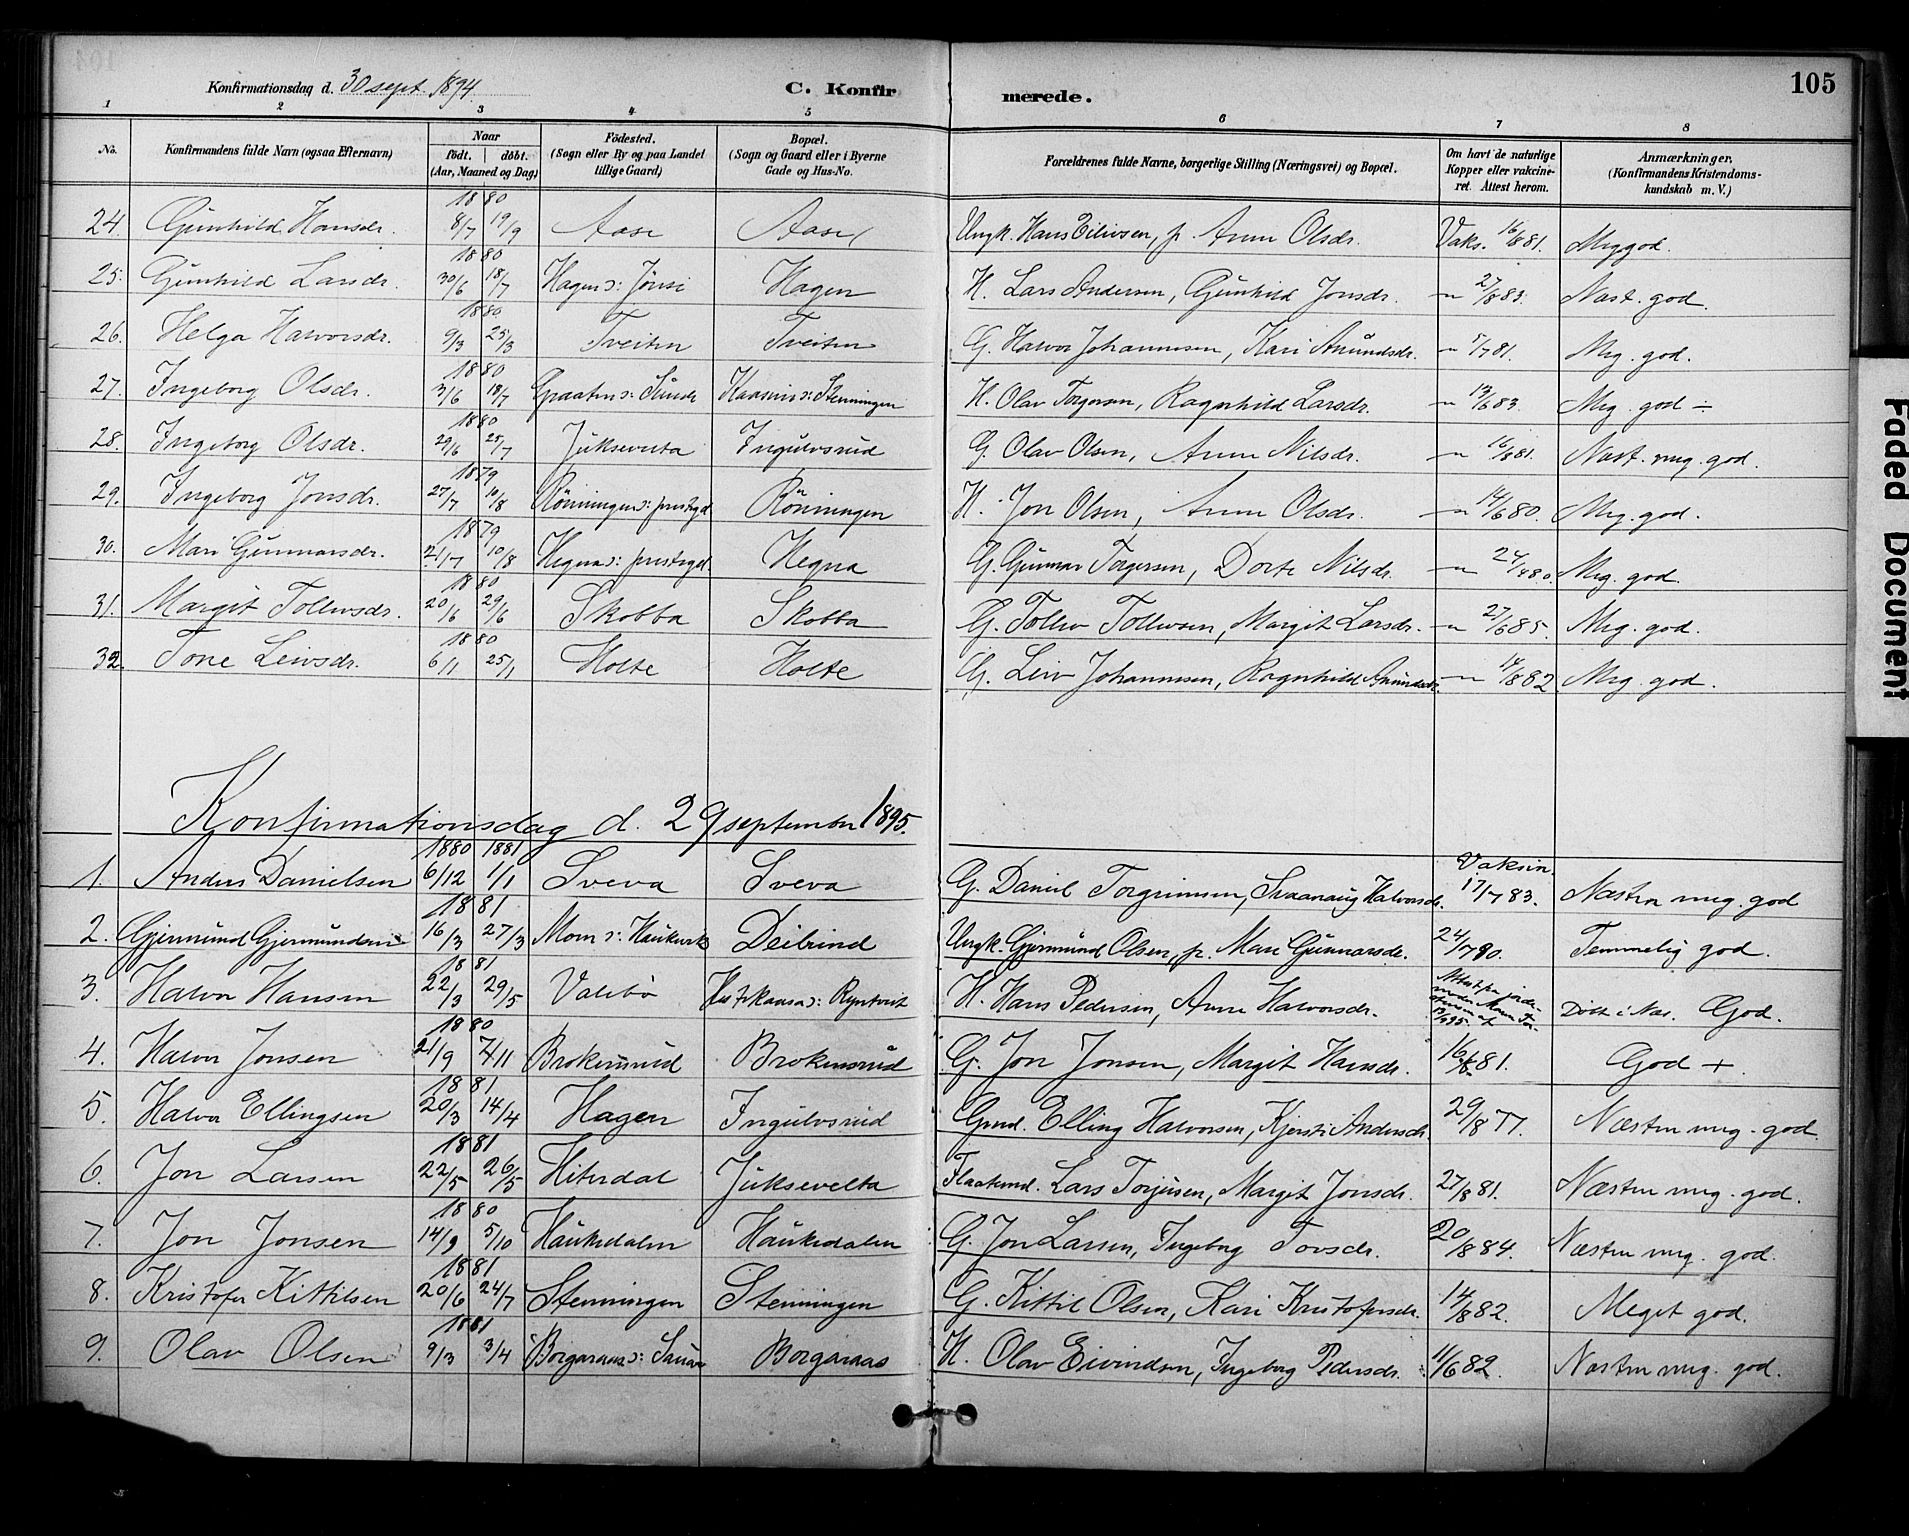 105
Konfirmationsdag d. 30 sept. 1894.
C. Konfirmerede.
1 2 3 4 5 6 7 8
No. Konfirmandens fulde Navn (ogsaa Efternavn) Naar født. døbt. (Aar, Maaned og Dag) Födested. (Sogn eller By og paa Landet tillige Gaard) Bopæl. (Sogn og Gaard eller i Byerne Gade og Hus-No. Forældrenes fulde Navne, borgerlige Stilling (Næringsvei) og Bopæl. Om havt de naturlige Kopper eller vakcineret. Attest herom. Anmærkninger. (Konfirmandens Kristendomskundskab m. V.)
1880
24. Gunhild Hansdr. 8/7 19/9 Aase Aase Ungk. Hans Eilivsen, p. Anne Olsdr. Vaks. 16/8 81. Meg. god.
1880
25. Gunhild Larsdr. 30/6 18/7 Hagen s: Jönsi Hagen H. Lars Andersen, Gunhild Jonsdr. — 27/8 83. Næst. god
1880
26. Helga Halvorsdr. 9/3 25/3 Tveiten Tveiten G. Halvor Johannesen, Kari Amundsdr. — 5/7 81. Meg. god.
1880
27. Ingeborg Olsdr. 3/6 18/7 Graaten s: Kaasene s: Stenningen H. Olav Torgersen, Ragnhild Larsdr. — 13/6 83. Meg. god ÷
1880
28. Ingeborg Olsdr. 29/6 25/7 Juksevelta Ingulvsrud G. Olav Olsen, Anne Nilsdr. — 16/8 81. Næst. meg. god.
1879
29. Ingeborg Jonsdr. 27/7 10/8 Rönningen s: prestegd Rönningen H. Jon Olsen, Anne Olsdr. — 14/6 80. Meg. god.
1879
30. Mari Gunnarsdr. 21/7 10/8 Hegna s: prestegd Hegna G. Gunnar Torgersen, Dorte Nilsdr. — Meg. god.
1880
31. Margit Tollevsdr. 20/6 29/6 Skobba Skobba G. Tollev Tollevsen, Margit Larsdr. — 27/6 85. Meg. god.
1880
32. Tone Leivsdr. 6/1 25/1 Holte Holte G. Leiv Johannesen, Ragnhild Amundsdr. — 14/8 82 Meg. god.
Konfirmationsdag d. 29 september 1895.
1880 1881 Vaksin.
1. Anders Danielsen 6/12 1/1 Sveva Sveva G. Daniel Torgrimsen, Halvorsdr. 17/7 83. Næsten meg. god
1881
2. Gjermund Gjermundsen 16/3 27/3 Moen s: Deilrind Ungk. Gjermund Olsen, p. Mari Gunnarsdr. 24/7 90. Temmelig god.
1881
3. Halvor Hansen 22/3 29/5 Valebö H. Hans Pedersen, Anne Halvorsdr. Attest fra Döbt i Næs. God.
1880
4. Halvor Jonsen 21/9 7/11 Brokensrud Brokensrud G. Jon Jonsen, Margit Hansdr. 16/8 81. God +.
1881
5. Halvor Ellingsen 20/3 14/4 Hagen Ingulvsrud Elling Halvorsen, Kjersti Andersdr. 29/8 77. Næsten meg. god.
1881
6. Jon Larsen 22/5 26/5 Hiterdal Juksevelta Lars Torjusen, Margit Jonsdr. 27/8 81. Næsten meg. god.
1880
7. Jon Jonsen 14/9 5/10 Haukedalen Haukedalen G. Jon Larsen, Ingeborg Tovsdr. 20/8 84. Næsten meg. god.
1881
8. Kristofer Kittilsen 20/6 24/7 Stenningen Stenningen G. Kittil Olsen, Kari Kristofersdr. 14/8 82. Meget god.
1881
9. Olav Olsen 9/3 3/4 Borgaraas s: Borgaraas H. Olav Eivindsen, Ingeborg Pedersdr. 11/6 82 Næsten meg. god.
Faded Document